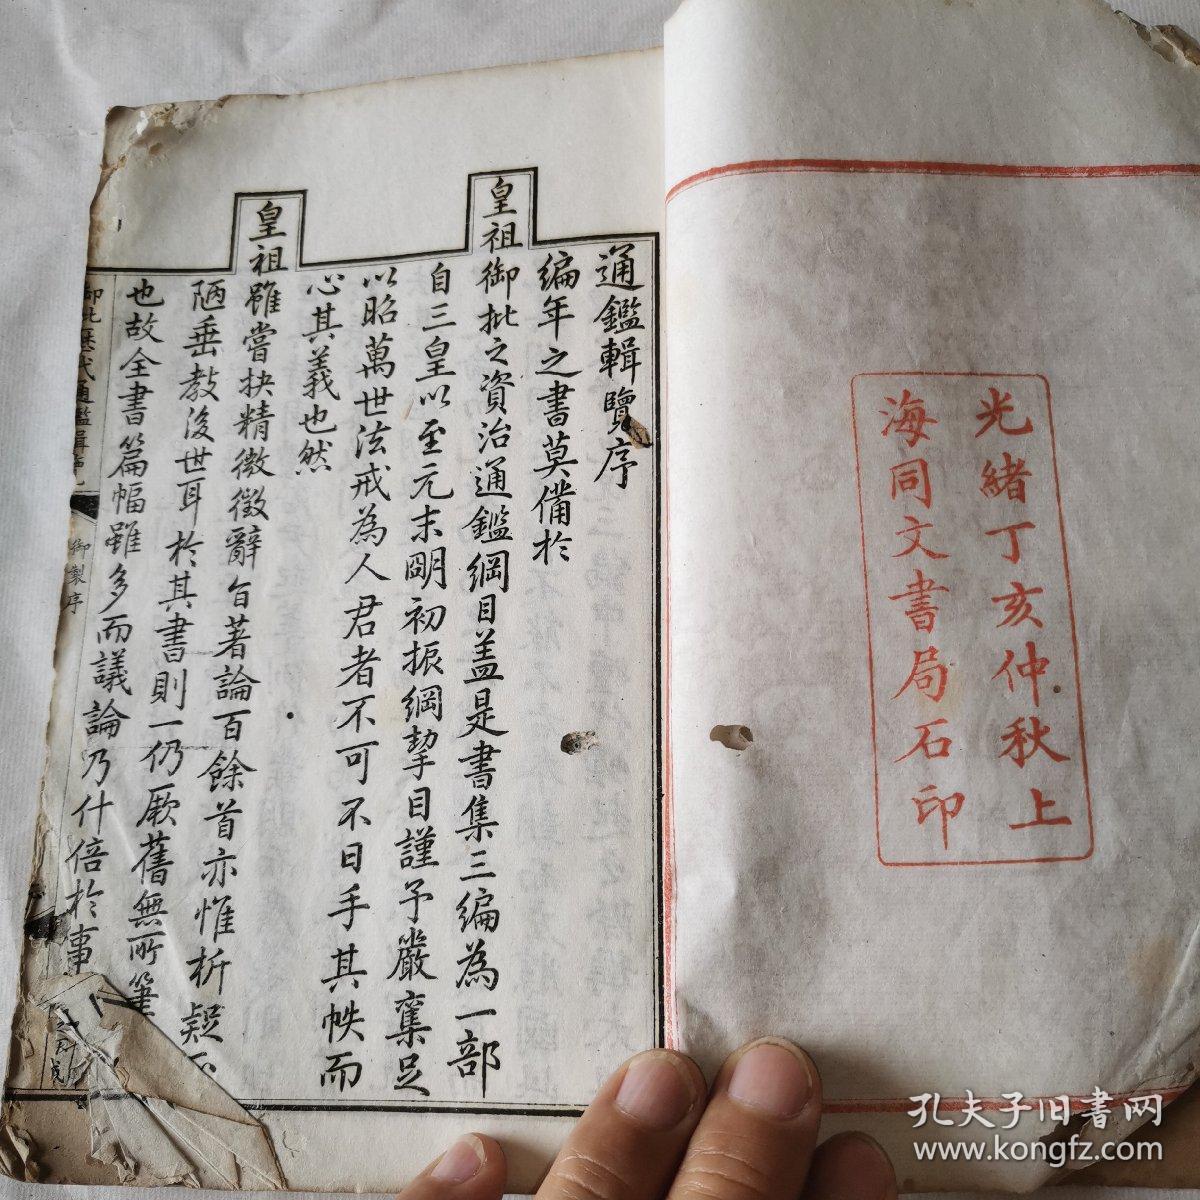 光緒丁亥仲秋上
海同文書局石印
通鑑輯覽序
編年之書莫備於
皇祖御批之資治通鑑綱目盖是書集三編為一部
自三皇以至元末明初振綱挈目謹予嚴奪足
以昭萬世法戒為人君者不可不日手其帙而
心其義也然
皇祖雖嘗抉精微徵辭旨著論百餘首亦惟析疑
陋垂教後世耳於其書則一仍厥舊無所筆
也故全書篇幅雖多而議論乃什倍於事
御批歷代通鑑輯
御製序
孔夫子旧书网
www.kongfz.com